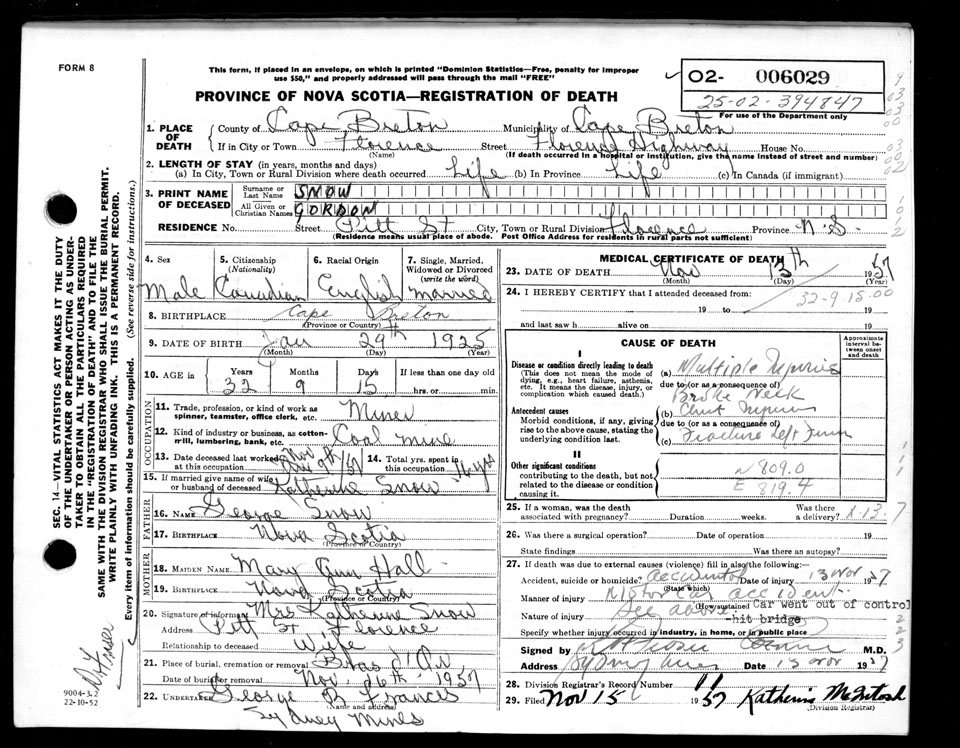 FORM 8
This form, if placed in an envelope, on which is printed "Dominion Statistics—Free, penalty for improper
use $50," and properly addressed will pass through the mail "FREE"
PROVINCE OF NOVA SCOTIA—REGISTRATION OF DEATH
02- 006029
25-02-394847
For use of the Department only
1. PLACE OF DEATH
County of Cape Breton Municipality of Cape Breton
If in City or Town Florence Street Florence Highway House No.
(Name) (If death occurred in a hospital or institution, give the name instead of street and number)
2. LENGTH OF STAY (in years, months and days)
(a) In City, Town or Rural Division where death occurred Life (b) In Province Life (c) In Canada (if immigrant)
3. PRINT NAME OF DECEASED
Surname or Last Name SNOW
All Given or Christian Names GORDON
RESIDENCE No. Street Pitt St City, Town or Rural Division Florence Province N.S.
(Residence means usual place of abode. Post Office Address for residents in rural parts not sufficient)
4. Sex 5. Citizenship (Nationality) 6. Racial Origin 7. Single, Married, Widowed or Divorced (write the word)
Male Canadian English Married
8. BIRTHPLACE Cape Breton
(Province or Country)
9. DATE OF BIRTH Jan 29th 1925
(Month) (Day) (Year)
10. AGE IN Years Months Days If less than one day old
32 9 15 hrs. or min.
OCCUPATION
11. Trade, profession, or kind of work as spinner, teamster, office clerk, etc. Miner
12. Kind of industry or business, as cotton-mill, lumbering, bank, etc. Coal Mine
13. Date deceased last worked at this occupation 14. Total yrs. spent in this occupation
15. If married give name of wife or husband of deceased Katherine Snow
FATHER
16. NAME George Snow
17. BIRTHPLACE Nova Scotia
(Province or Country)
MOTHER
18. MAIDEN NAME Mary Ann Hall
19. BIRTHPLACE Nova Scotia
(Province or Country)
20. Signature of informant Mrs Katherine Snow
Address Pitt St Florence
Relationship to deceased Wife
21. Place of burial, cremation or removal Bras d'Or
Date of burial or removal Nov. 16th 1957
22. UNDERTAKER George B Francis
(Name and address)
Sydney Mines
MEDICAL CERTIFICATE OF DEATH
23. DATE OF DEATH Nov 13th 1957
(Month) (Day) (Year)
24. I HEREBY CERTIFY that I attended deceased from:
32-9-15-00
19 to 19
and last saw h alive on 19
CAUSE OF DEATH
Approximate interval between onset and death
I
Disease or condition directly leading to death
(This does not mean the mode of dying, e.g., heart failure, asthenia, etc. It means the disease, injury, or complication which caused death.)
(a) Multiple Injuries
due to (or as a consequence of)
Broke Neck
Antecedent causes
Morbid conditions, if any, giving rise to the above cause, stating the underlying condition last.
(b) Chest Injuries
due to (or as a consequence of)
(c) Fracture Left
II
Other significant conditions
contributing to the death, but not related to the disease or condition causing it.
N 809.0
E 819.4
25. If a woman, was the death associated with pregnancy? Duration weeks. Was there a delivery? X-13-7
26. Was there a surgical operation? Date of operation 19
State findings Was there an autopsy?
27. If death was due to external causes (violence) fill in also the following:—
Accident, suicide or homicide? Accident Date of injury 13 Nov 1957
(State which)
Manner of injury Motor Car accident
(How sustained) Car went out of control
Nature of injury See above -hit bridge
Specify whether injury occurred in industry, in home, or in public place
Signed by M.D.
Address Sydney Mines Date 15 Nov 1957
28. Division Registrar's Record Number 11
29. Filed Nov 15 1957 Katherine McIntosh
(Division Registrar)
SEC. 14—VITAL STATISTICS ACT MAKES IT THE DUTY
OF THE UNDERTAKER OR PERSON ACTING AS UNDER-
TAKER TO OBTAIN ALL THE PARTICULARS REQUIRED
IN THE "REGISTRATION OF DEATH" AND TO FILE THE
SAME WITH THE DIVISION REGISTRAR WHO SHALL ISSUE THE BURIAL PERMIT.
WRITE PLAINLY WITH UNFADING INK. THIS IS A PERMANENT RECORD.
Every item of information should be carefully supplied. (See reverse side for instructions.)
9004-3.2
22-10-52